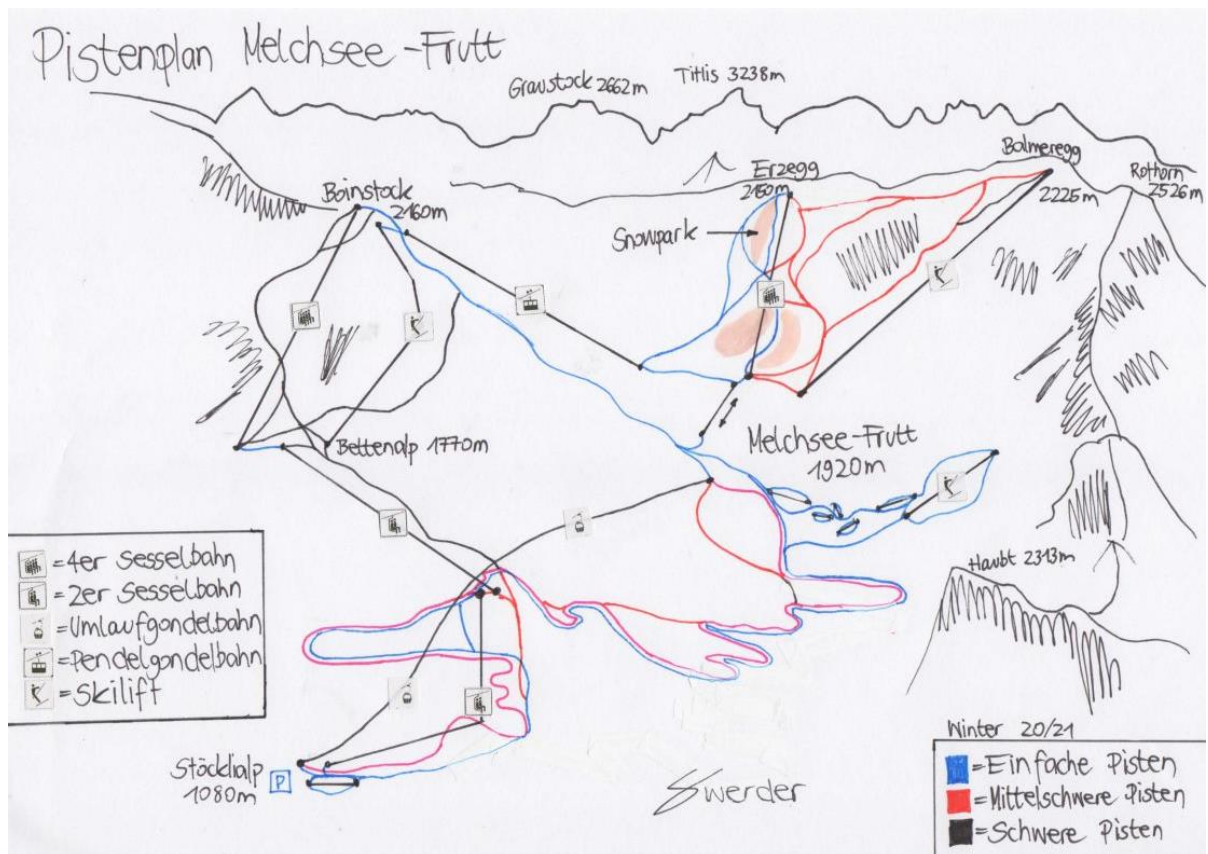 Pistenplan Melchsee-Frutt
Graustock 2662m
Titlis 3238m
Balmeregg
2225m
Rothorn
2526m
Erzegg
2150m
Bonistock
2160m
Snowpark
Bettenalp 1770m
Melchsee-Frutt
1920m
Haubt 2313m
=4er Sesselbahn
=2er Sesselbahn
=Umlaufgondelbahn
=Pendelgondelbahn
=Skilift
Stöcklialp
1080m
P
Werder
Winter 20/21
=Einfache Pisten
=Mittelschwere Pisten
=Schwere Pisten